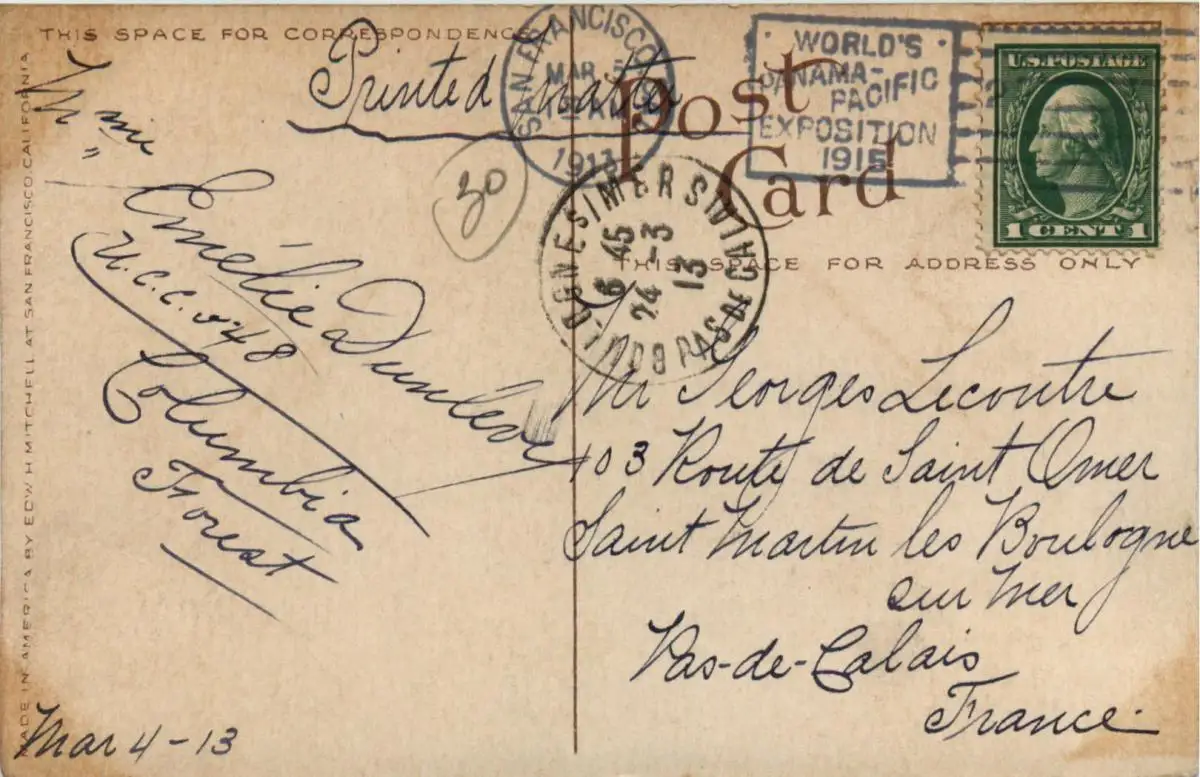 THIS SPACE FOR CORRESPONDENCE
Printed matter
SAN FRANCISCO
MAR 5
1913
WORLD'S
PANAMA-
PACIFIC
EXPOSITION
1915
U.S. POSTAGE
1 CENT 1
Post
Card
THIS SPACE FOR ADDRESS ONLY
30
6 45
24 -3
13
PAS DE CALAIS
Emélie Dunleve
U.C.C. 548
Columbia
Forest
Mar 4-13
Mr Georges Lecoutre
103 Route de Saint Omer
Saint Martin les Boulogne
sur Mer
Pas-de-Calais
France.
MADE IN AMERICA BY EDW H MITCHELL AT SAN FRANCISCO, CALIFORNIA